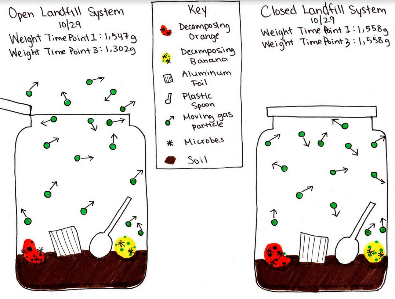 Open Landfill System
10/29
Weight Time Point 1: 1,547g
Weight Time Point 3: 1,302g
Key
Decomposing
Orange
Decomposing
Banana
Aluminum
Foil
Plastic
Spoon
Moving gas
particle
Microbes
Soil
Closed Landfill System
10/29
Weight Time Point 1: 1,558g
Weight Time Point 3: 1,558g